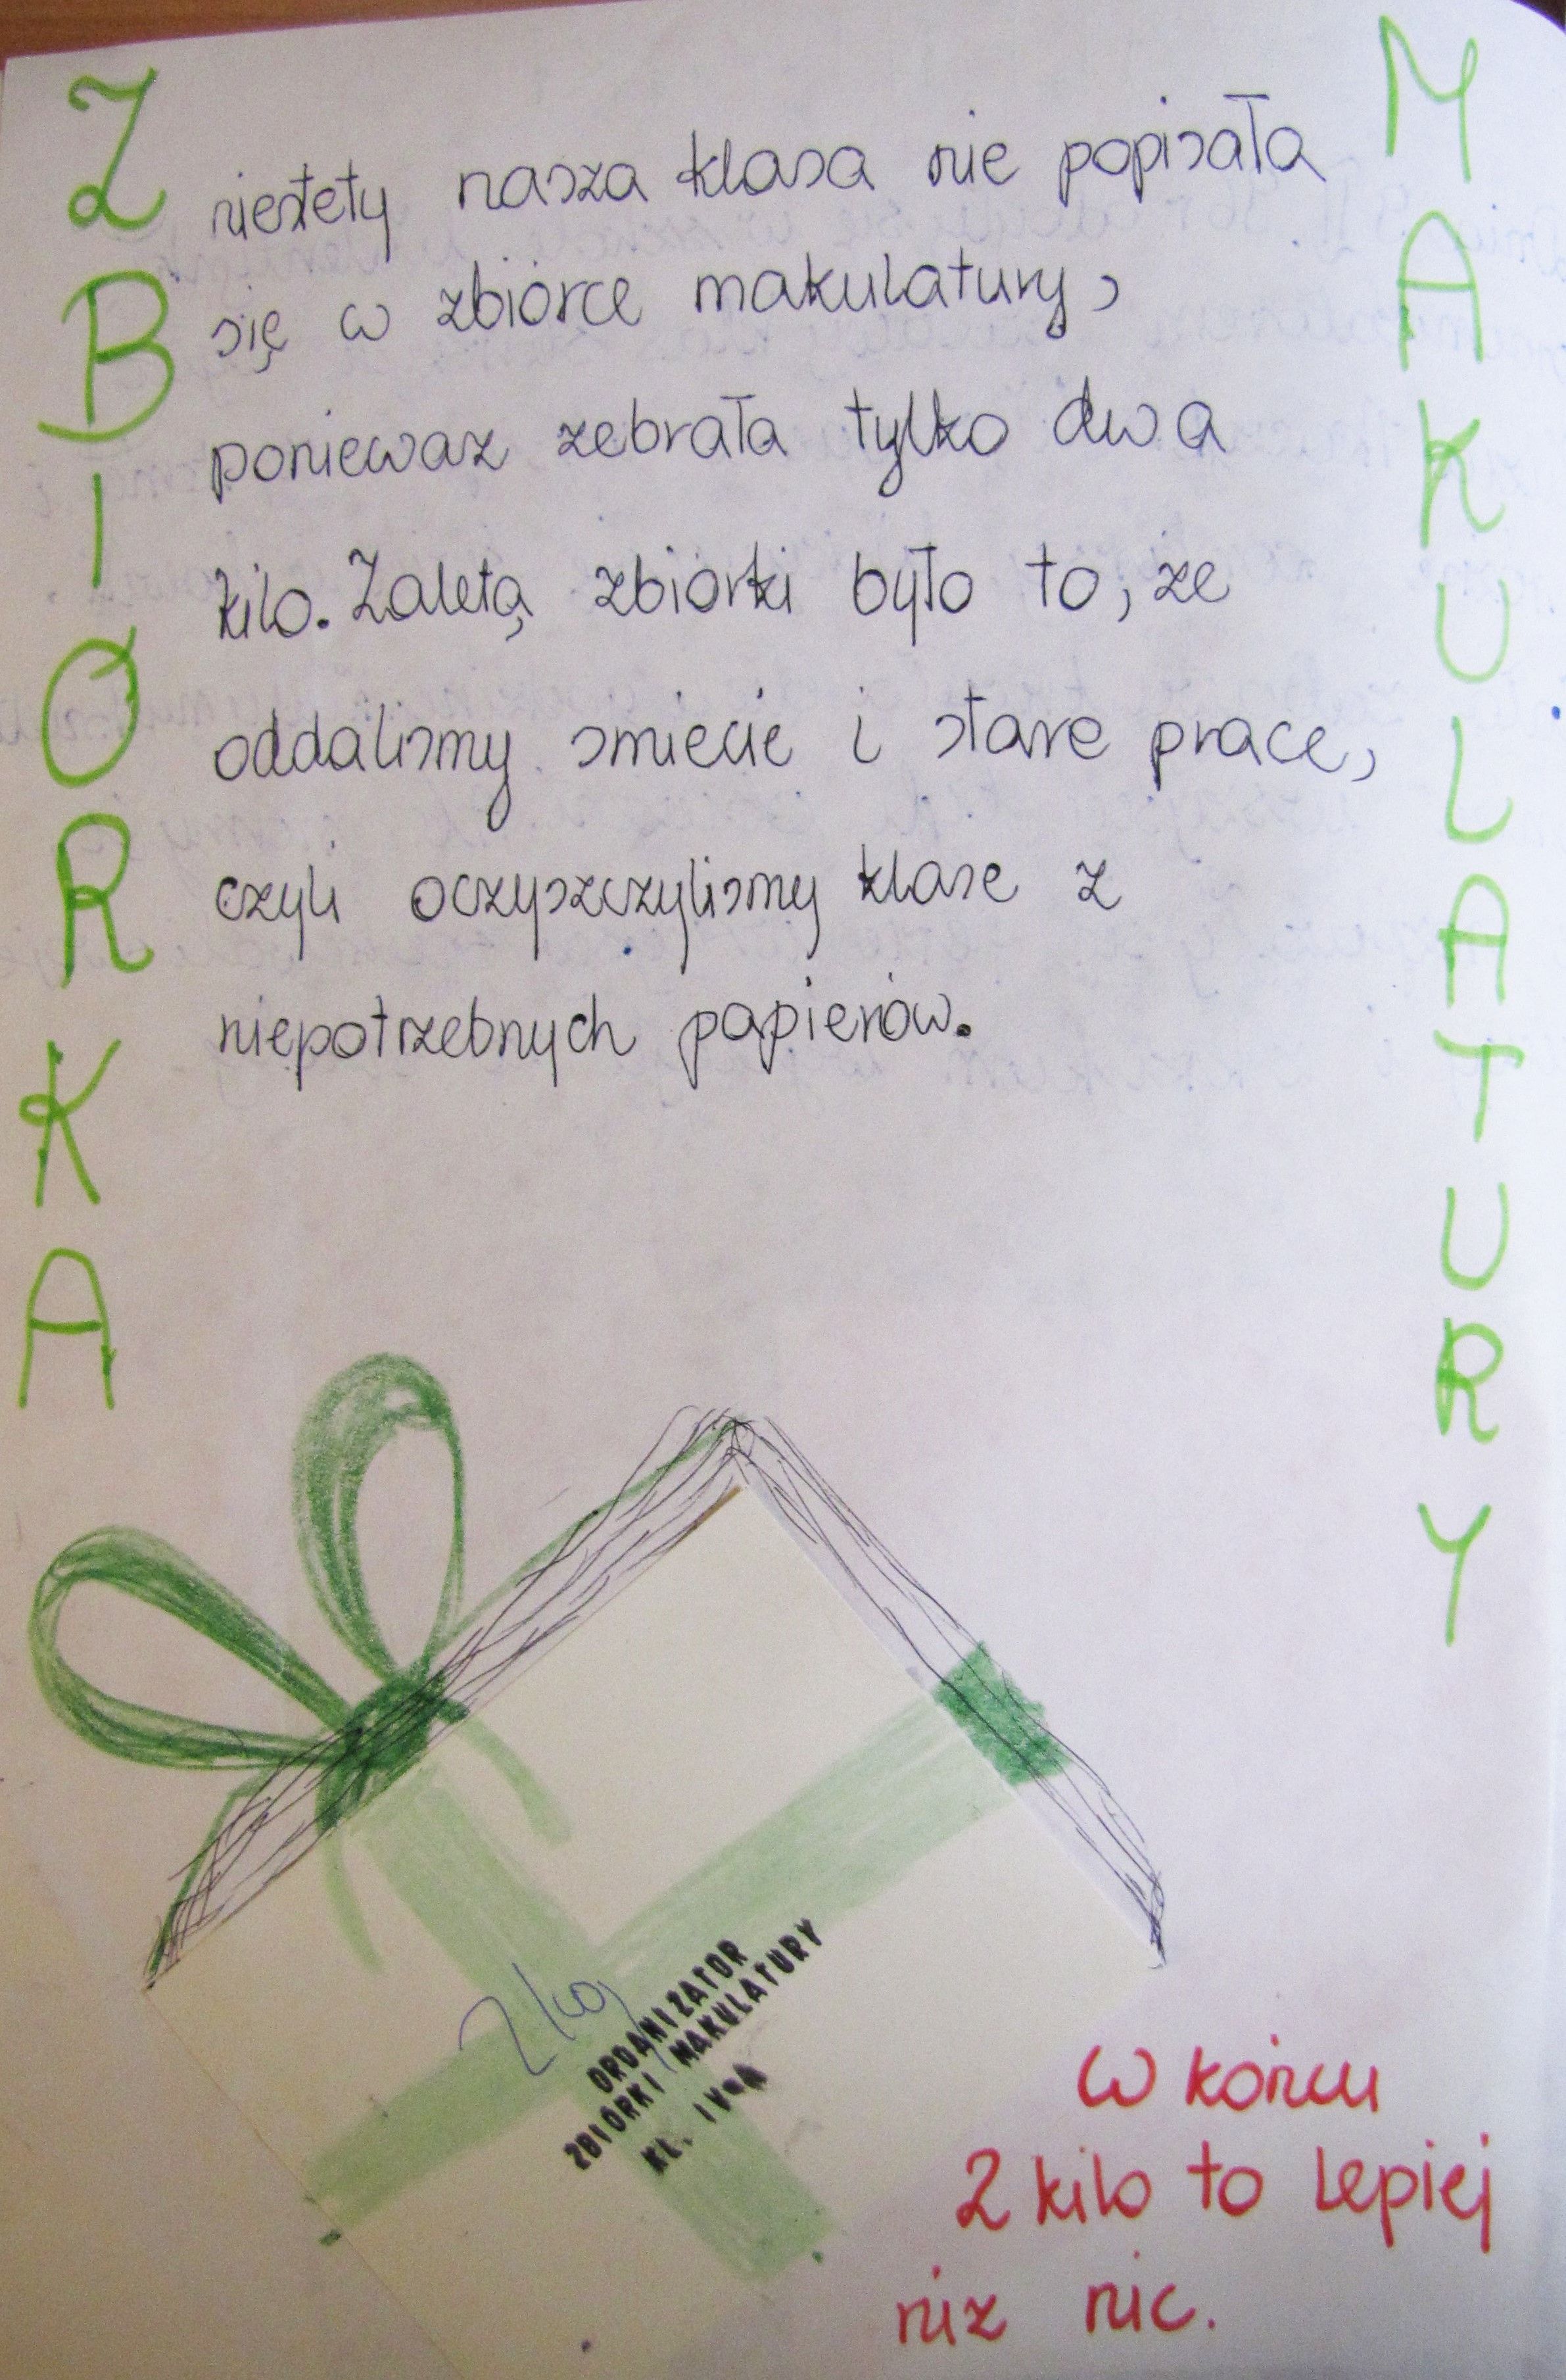 ZBIÓRKA
MAKULATURY
niestety nasza klasa nie popisała
się w zbiórce makulatury,
poniewaz zebrała tylko dwa
kilo. Zaletą zbiórki było to, ze
oddalismy smiecie i stare prace,
czyli oczyszczylismy klase z
niepotrzebnych papierów.
2 kg
ORGANIZATOR
ZBIÓRKI MAKULATURY
KL. IV-A
W końcu
2 kilo to lepiej
niz nic.